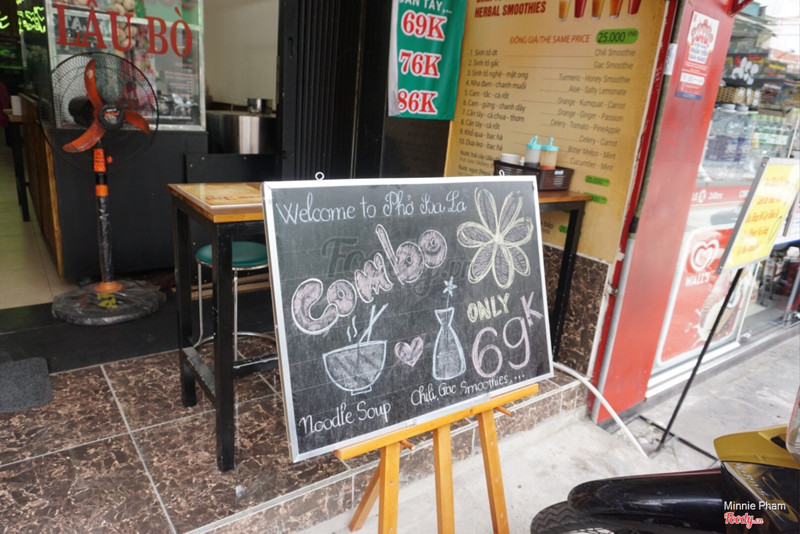 LẨU BÒ
69K
76K
86K
HERBAL SMOOTHIES
ĐỒNG GIÁ/THE SAME PRICE 25.000
1. Sinh tố ớt Chili Smoothie
2. Sinh tố gấc Gac Smoothie
3. Sinh tố nghệ - mật ong Turmeric - Honey Smoothie
4. Nha đam - chanh muối Aloe - Salty Lemonade
5. Cam - tắc - cà rốt Orange - Kumquat - Carrot
6. Cam - gừng - chanh dây Orange - Ginger - Passion
7. Cần tây - cà chua - thơm Celery - Tomato - PineApple
8. Cần tây - cà rốt Celery - Carrot
9. Khổ qua - bạc hà Bitter Melon - Mint
10. Dưa leo - bạc hà Cucumber - Mint
Welcome to Phở La Là
Combo
ONLY
69K
Noodle Soup
Chili Gac Smoothies, ...
WALL'S
Minnie Pham
Foody.vn